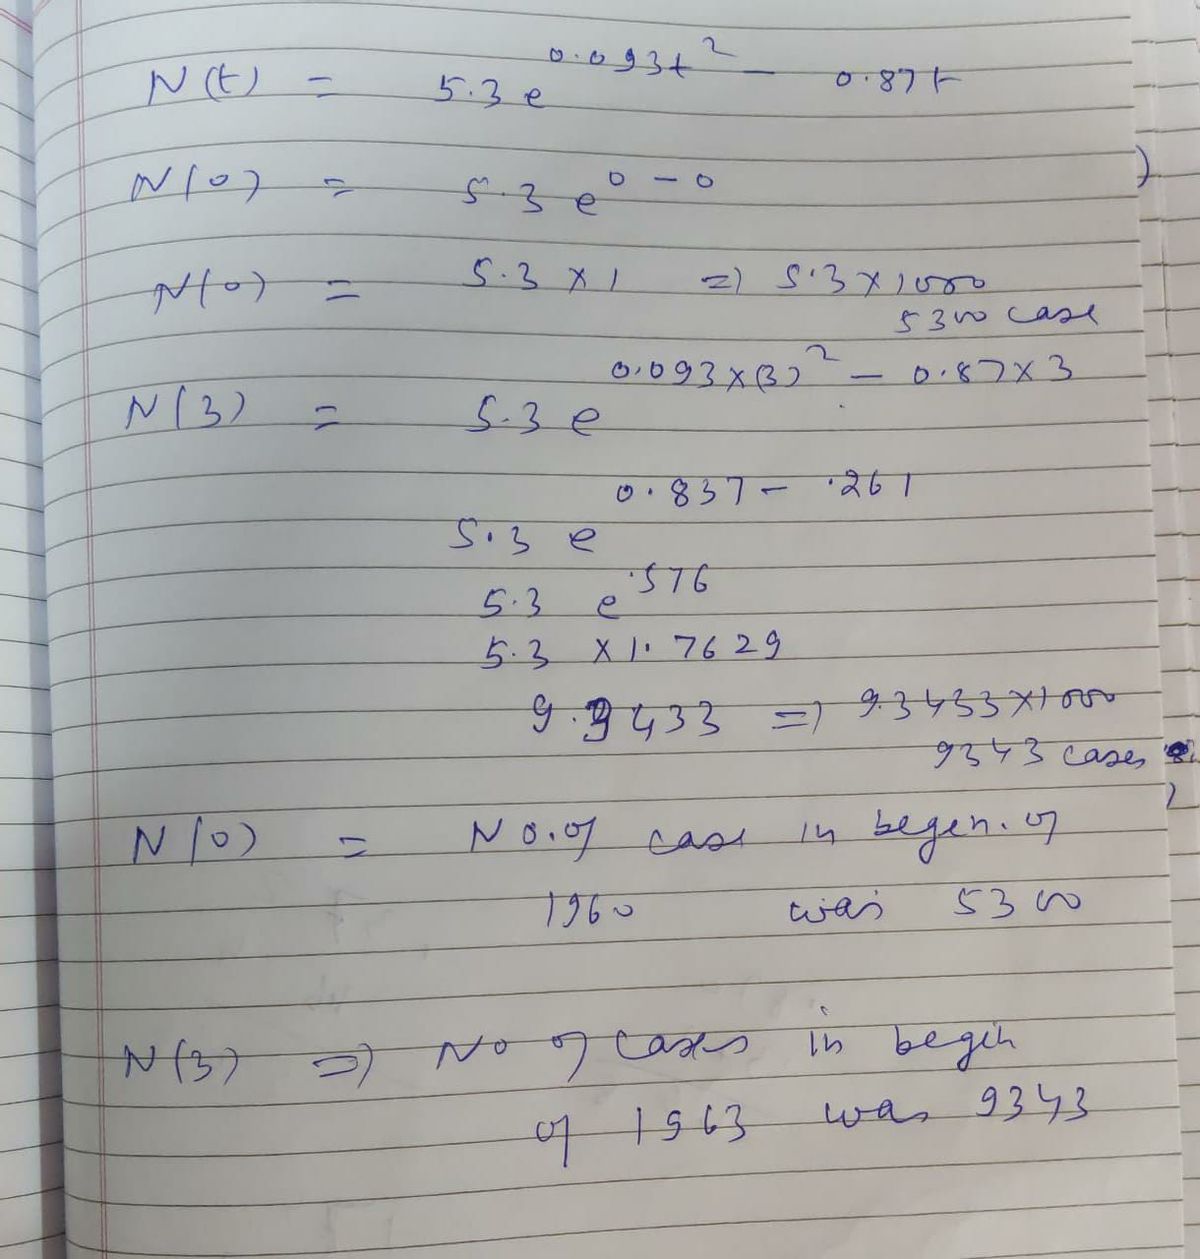 N(t) = 5.3 e^0.093t^2 - 0.87t
N(0) = 5.3 e^0 - 0
N(0) = 5.3 × 1 => 5.3 × 1000
5300 case
N(3) = 5.3 e^0.093×(3)^2 - 0.87×3
5.3 e^0.837 - .261
5.3 e^.576
5.3 × 1.7629
9.3433 => 9.3433×1000
9343 cases
N(0) = No. of case in begen. of
1960 was 5300
N(3) => No of cases in begin
of 1963 was 9343